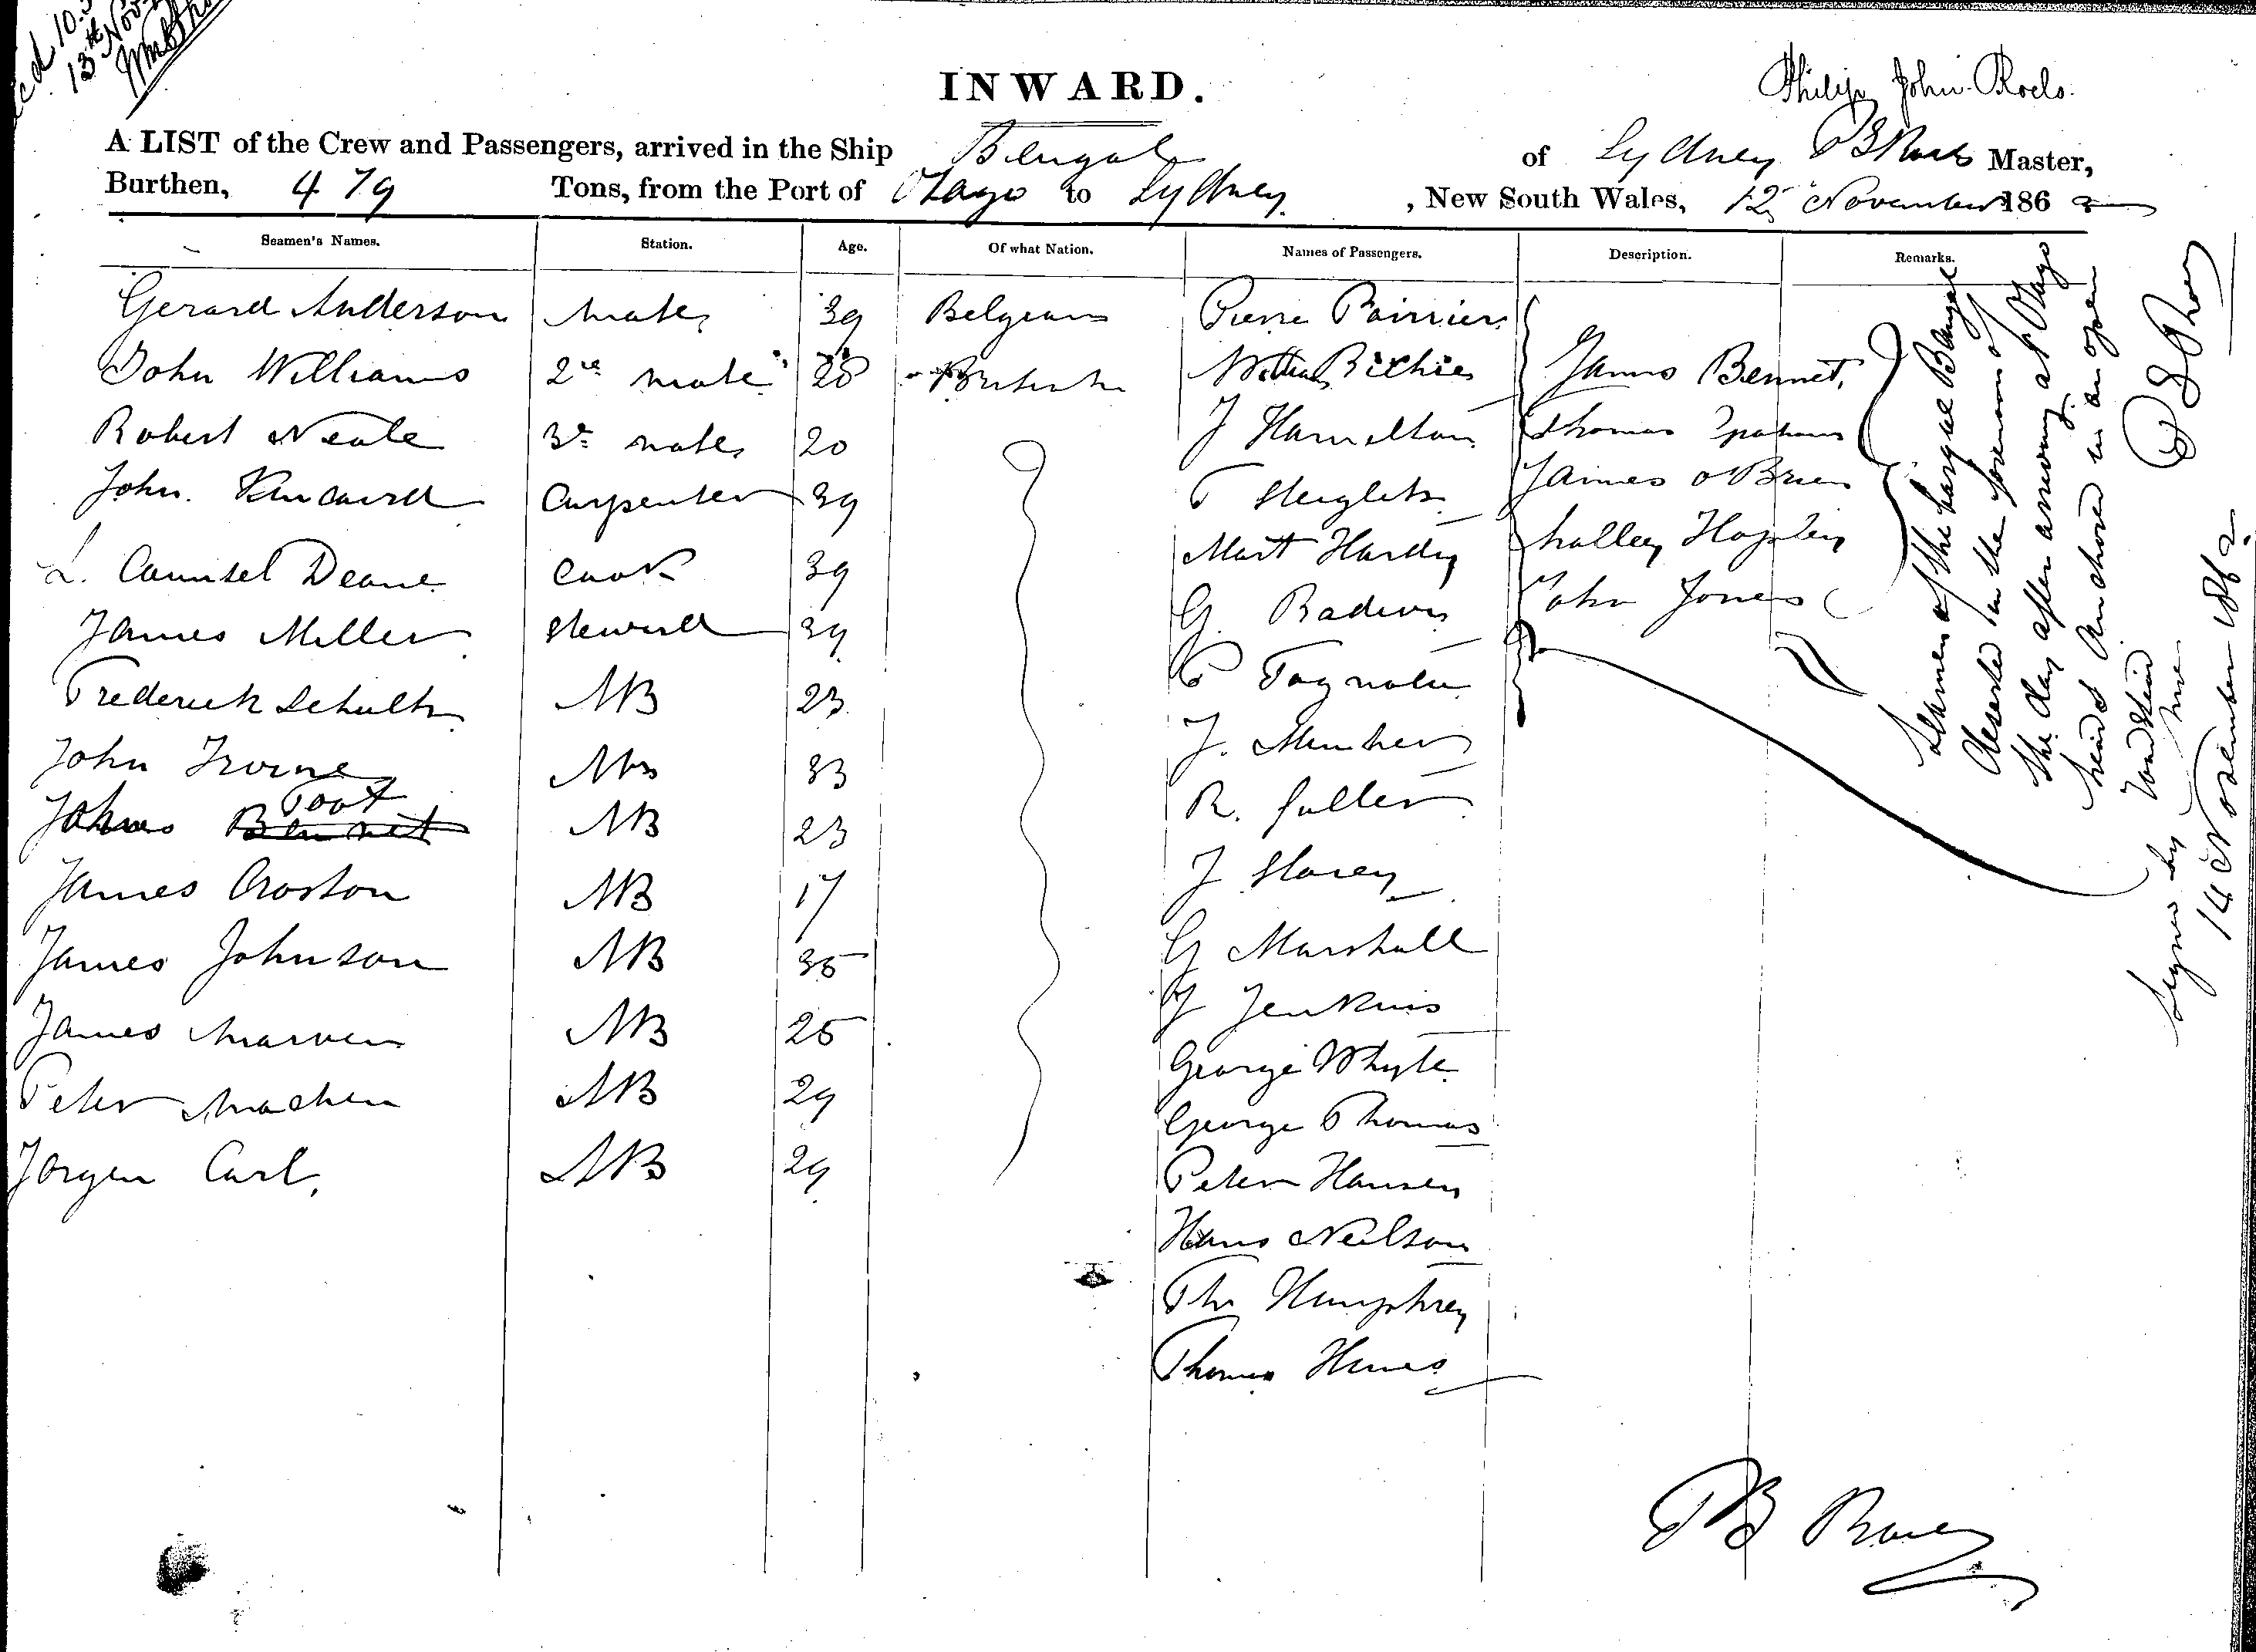 13th Nov
INWARD.
Philip John Roels.
A LIST of the Crew and Passengers, arrived in the Ship Bengal of Sydney Master,
Burthen, 479 Tons, from the Port of Otago to Sydney , New South Wales, 12 November 1862
Seamen's Names. Station. Age. Of what Nation. Names of Passengers. Description. Remarks.
Gerard Anderson Mate 39 Belgean Pierre Poirrier
John Williams 2nd mate 28 British Ritchie James Bennet,
Robert Neale 3rd mate 20 J Hamilton Thomas
John. Kincaird Carpenter 39 James O Brien
L. Deane Cook 39 Mart Hardy Hopley
James Miller Steward 39 G. John Jones
Frederick Schultz AB 23
John Irvine AB 33 J.
Toot
John Bennet AB 23 R. fuller
James Croston AB 17 J Storey
James Johnson AB 35 G Marshall
James Marven AB 25 J Jenkins
Peter Machen AB 29 George Whyte
Jorgen Carl. AB 29 George Thomas
Peter Hansen
Hans Neilson
Tho Humphrey
Thomas Hines
Seamen of the barque Bengal
deserted in the forenoon of
the day after arriving at Otago
heads Anchored in an open
Roadstead
Signed by me
14 November 1862